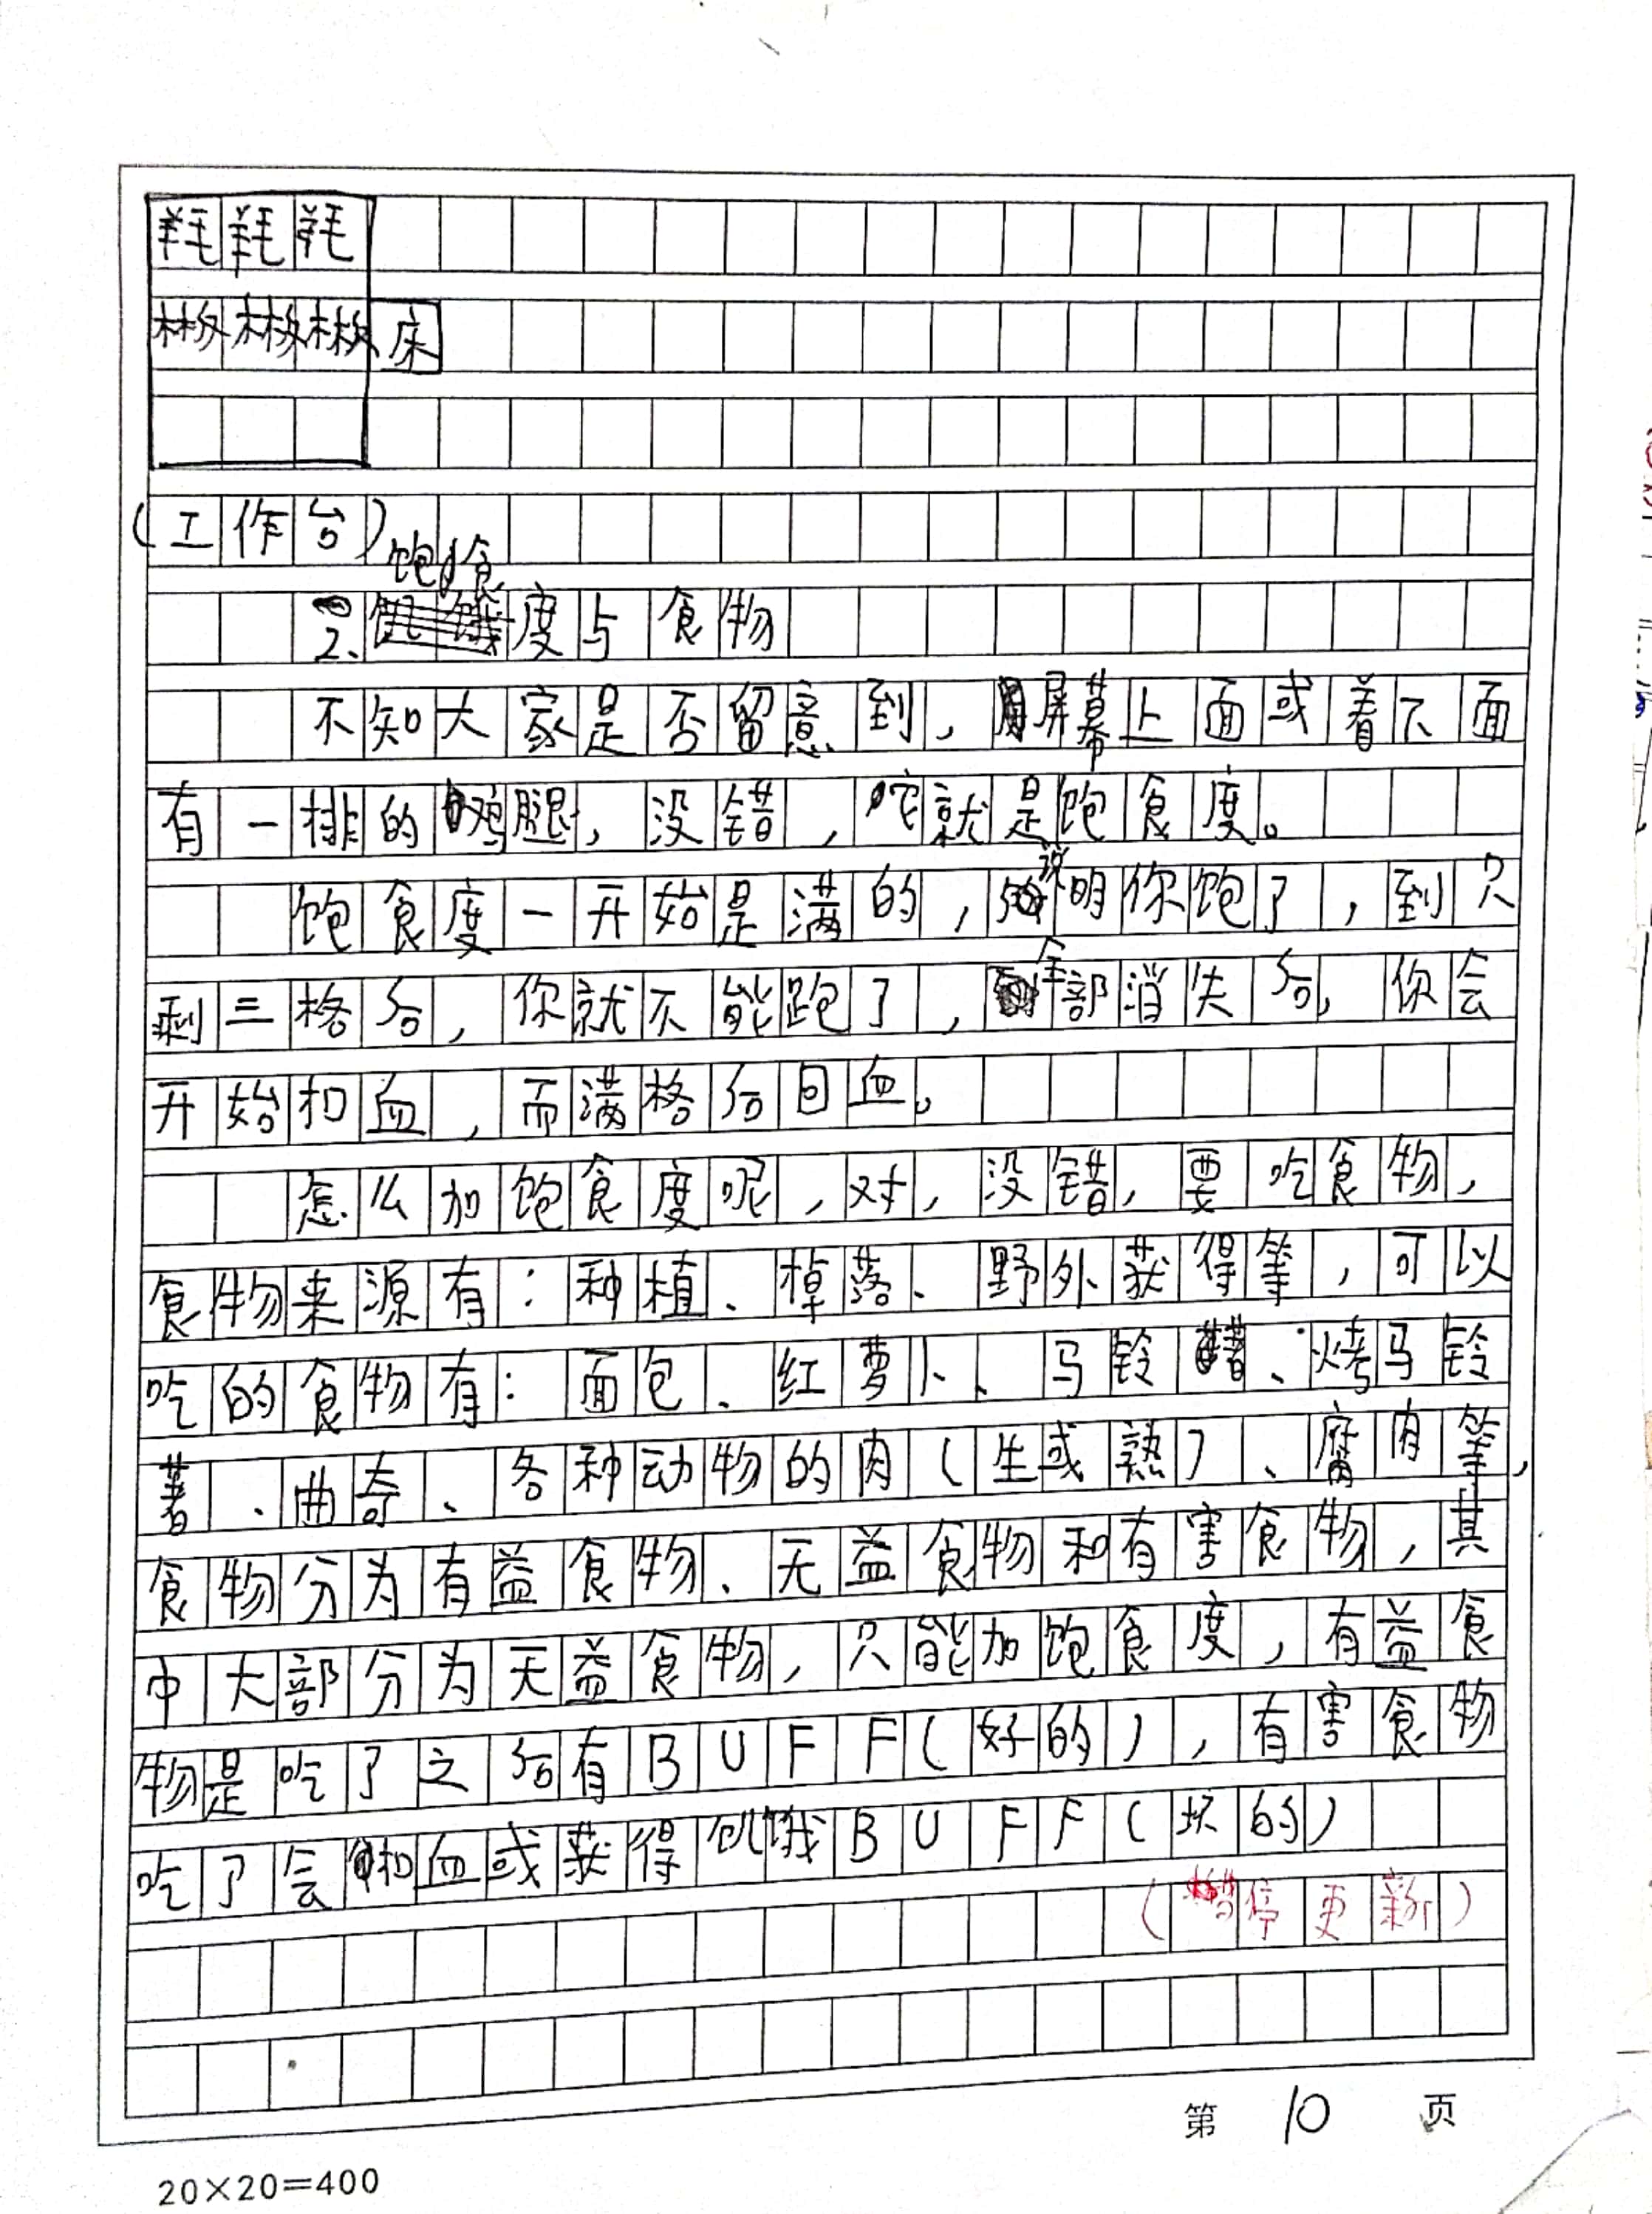 羊毛 羊毛 羊毛
木板 木板 木板 床
(工作台)
2.饱食度与食物
不知大家是否留意到,屏幕上面或着下面
有一排的鸡腿,没错,它就是饱食度。
饱食度一开始是满的,说明你饱了,到只
剩三格后,你就不能跑了,全部消失后,你会
开始扣血,而满格后回血。
怎么加饱食度呢,对,没错,要吃食物,
食物来源有:种植、掉落、野外获得等,可以
吃的食物有:面包、红萝卜、马铃薯、烤马铃
著、曲奇、各种动物的肉(生或熟)、腐肉等,
食物分为有益食物、无益食物和有害食物,其
中大部分为无益食物,只能加饱食度,有益食
物是吃了之后有BUFF(好的),有害食物
吃了会扣血或获得饥饿BUFF(坏的)
(暂停更新)
第 10 页
20×20=400